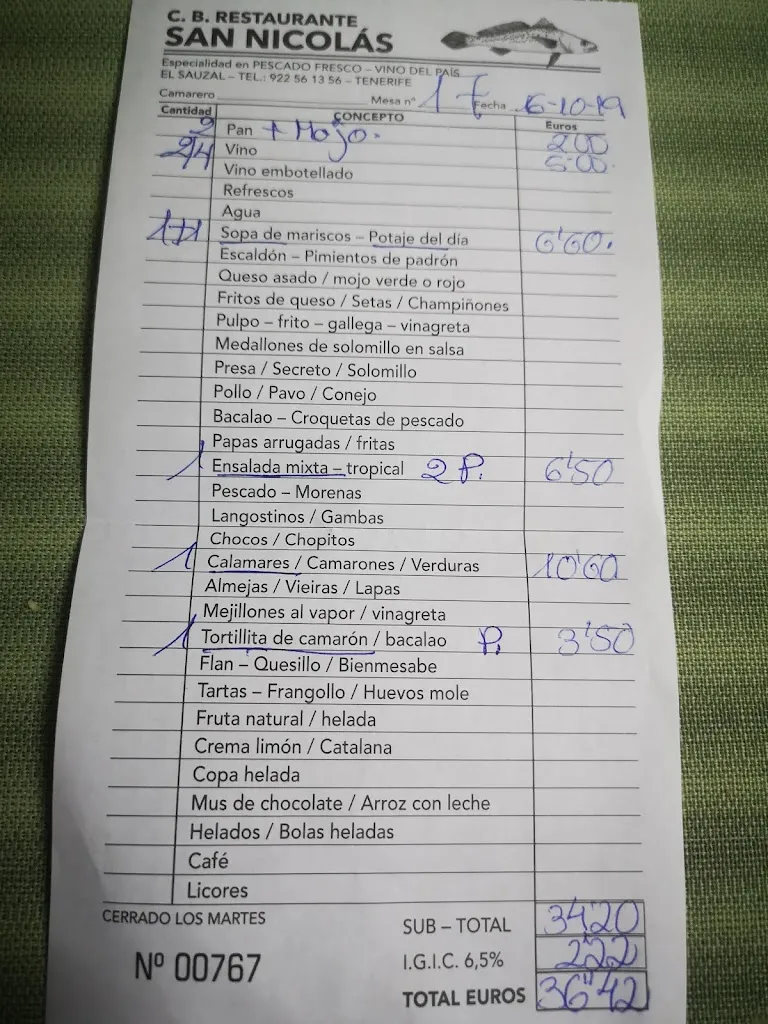 C. B. RESTAURANTE
SAN NICOLÁS
Especialidad en PESCADO FRESCO – VINO DEL PAÍS
EL SAUZAL – TEL.: 922 56 13 56 – TENERIFE
Camarero Mesa nº 17 Fecha 16-10-19
Cantidad CONCEPTO Euros
2 Pan + Mojo. 2'00
2/4 Vino 5'00.
Vino embotellado
Refrescos
Agua
1+1 Sopa de mariscos – Potaje del día 6'60.
Escaldón – Pimientos de padrón
Queso asado / mojo verde o rojo
Fritos de queso / Setas / Champiñones
Pulpo – frito – gallega – vinagreta
Medallones de solomillo en salsa
Presa / Secreto / Solomillo
Pollo / Pavo / Conejo
Bacalao – Croquetas de pescado
Papas arrugadas / fritas
1 Ensalada mixta – tropical 2 P. 6'50
Pescado – Morenas
Langostinos / Gambas
Chocos / Chopitos
1 Calamares / Camarones / Verduras 10'60
Almejas / Vieiras / Lapas
Mejillones al vapor / vinagreta
1 Tortillita de camarón / bacalao P. 3'50
Flan – Quesillo / Bienmesabe
Tartas – Frangollo / Huevos mole
Fruta natural / helada
Crema limón / Catalana
Copa helada
Mus de chocolate / Arroz con leche
Helados / Bolas heladas
Café
Licores
CERRADO LOS MARTES
SUB – TOTAL 34'20
Nº 00767
I.G.I.C. 6,5% 2'22
TOTAL EUROS 36'42